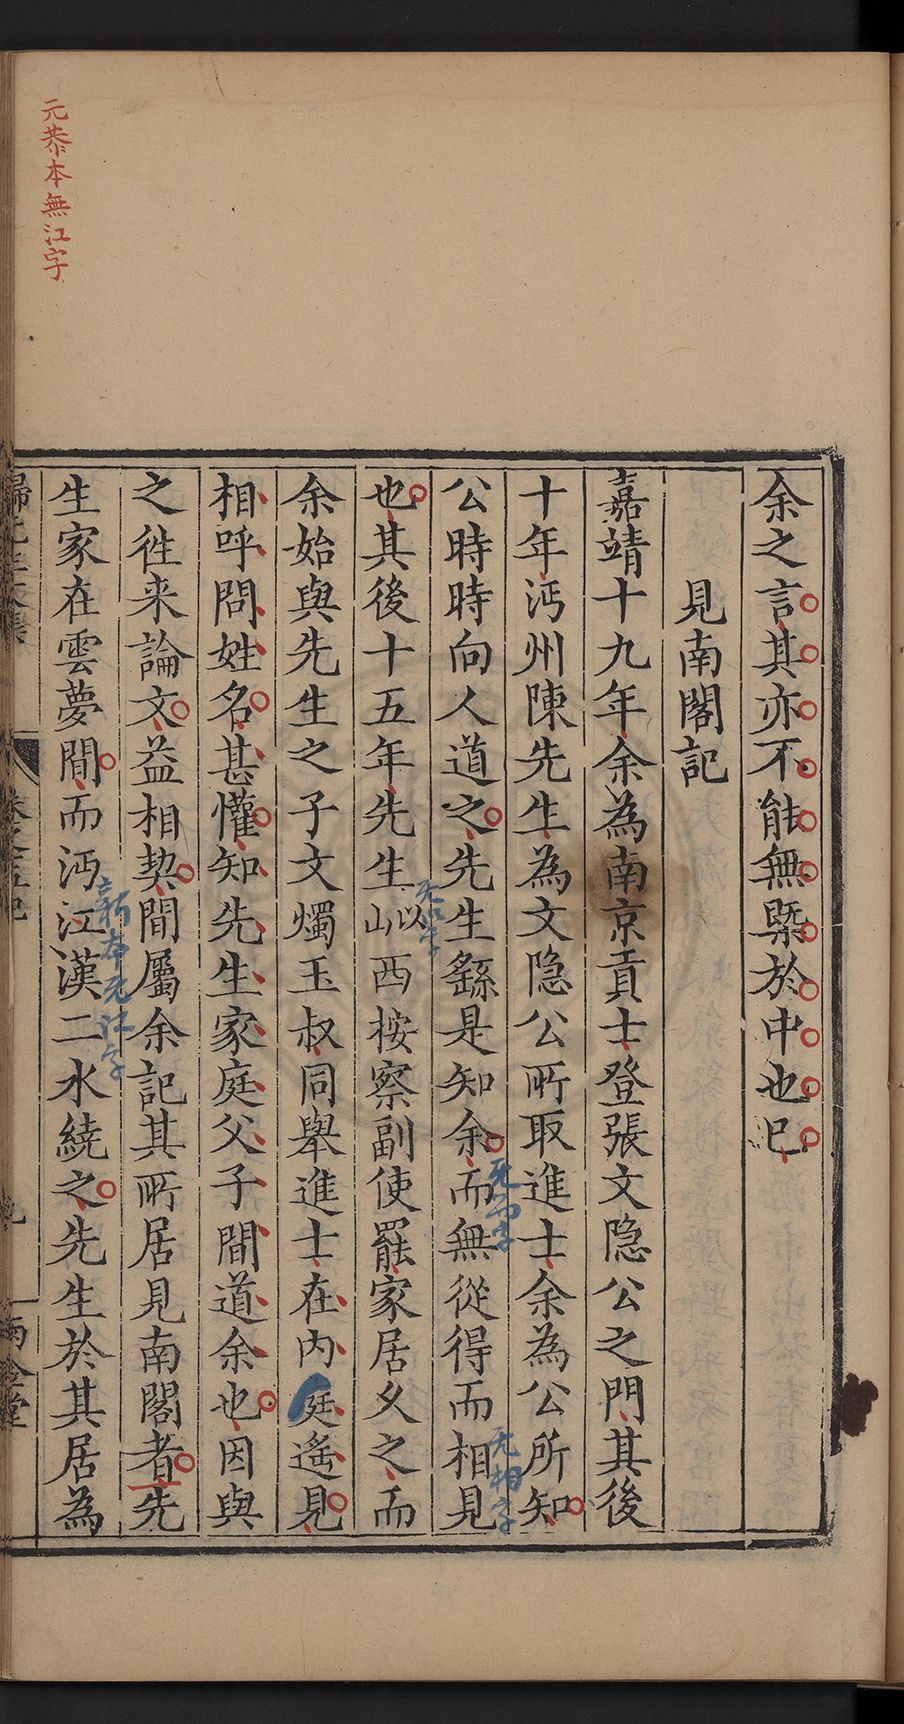 元恭本無江字
余之言其亦不能無槩於中也已
見南閣記
嘉靖十九年余為南京貢士登張文隐公之門其後
十年沔州陳先生為文隐公所取進士余為公所知
公時時向人道之先生繇是知余而無從得而相見
无而字
无相字
也其後十五年先生以山西按察副使罷家居久之而
无以字
余始與先生之子文燭玉叔同舉進士在内庭遙見
相呼問姓名甚懽知先生家庭父子間道余也因與
之徃来論文益相契間屬余記其所居見南閣者先
生家在雲夢間而沔江漢二水繞之先生於其居為
新本无江字